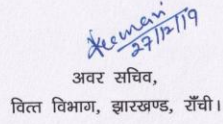 27/12/19
अवर सचिव,
वित्त विभाग, झारखण्ड, राँची।